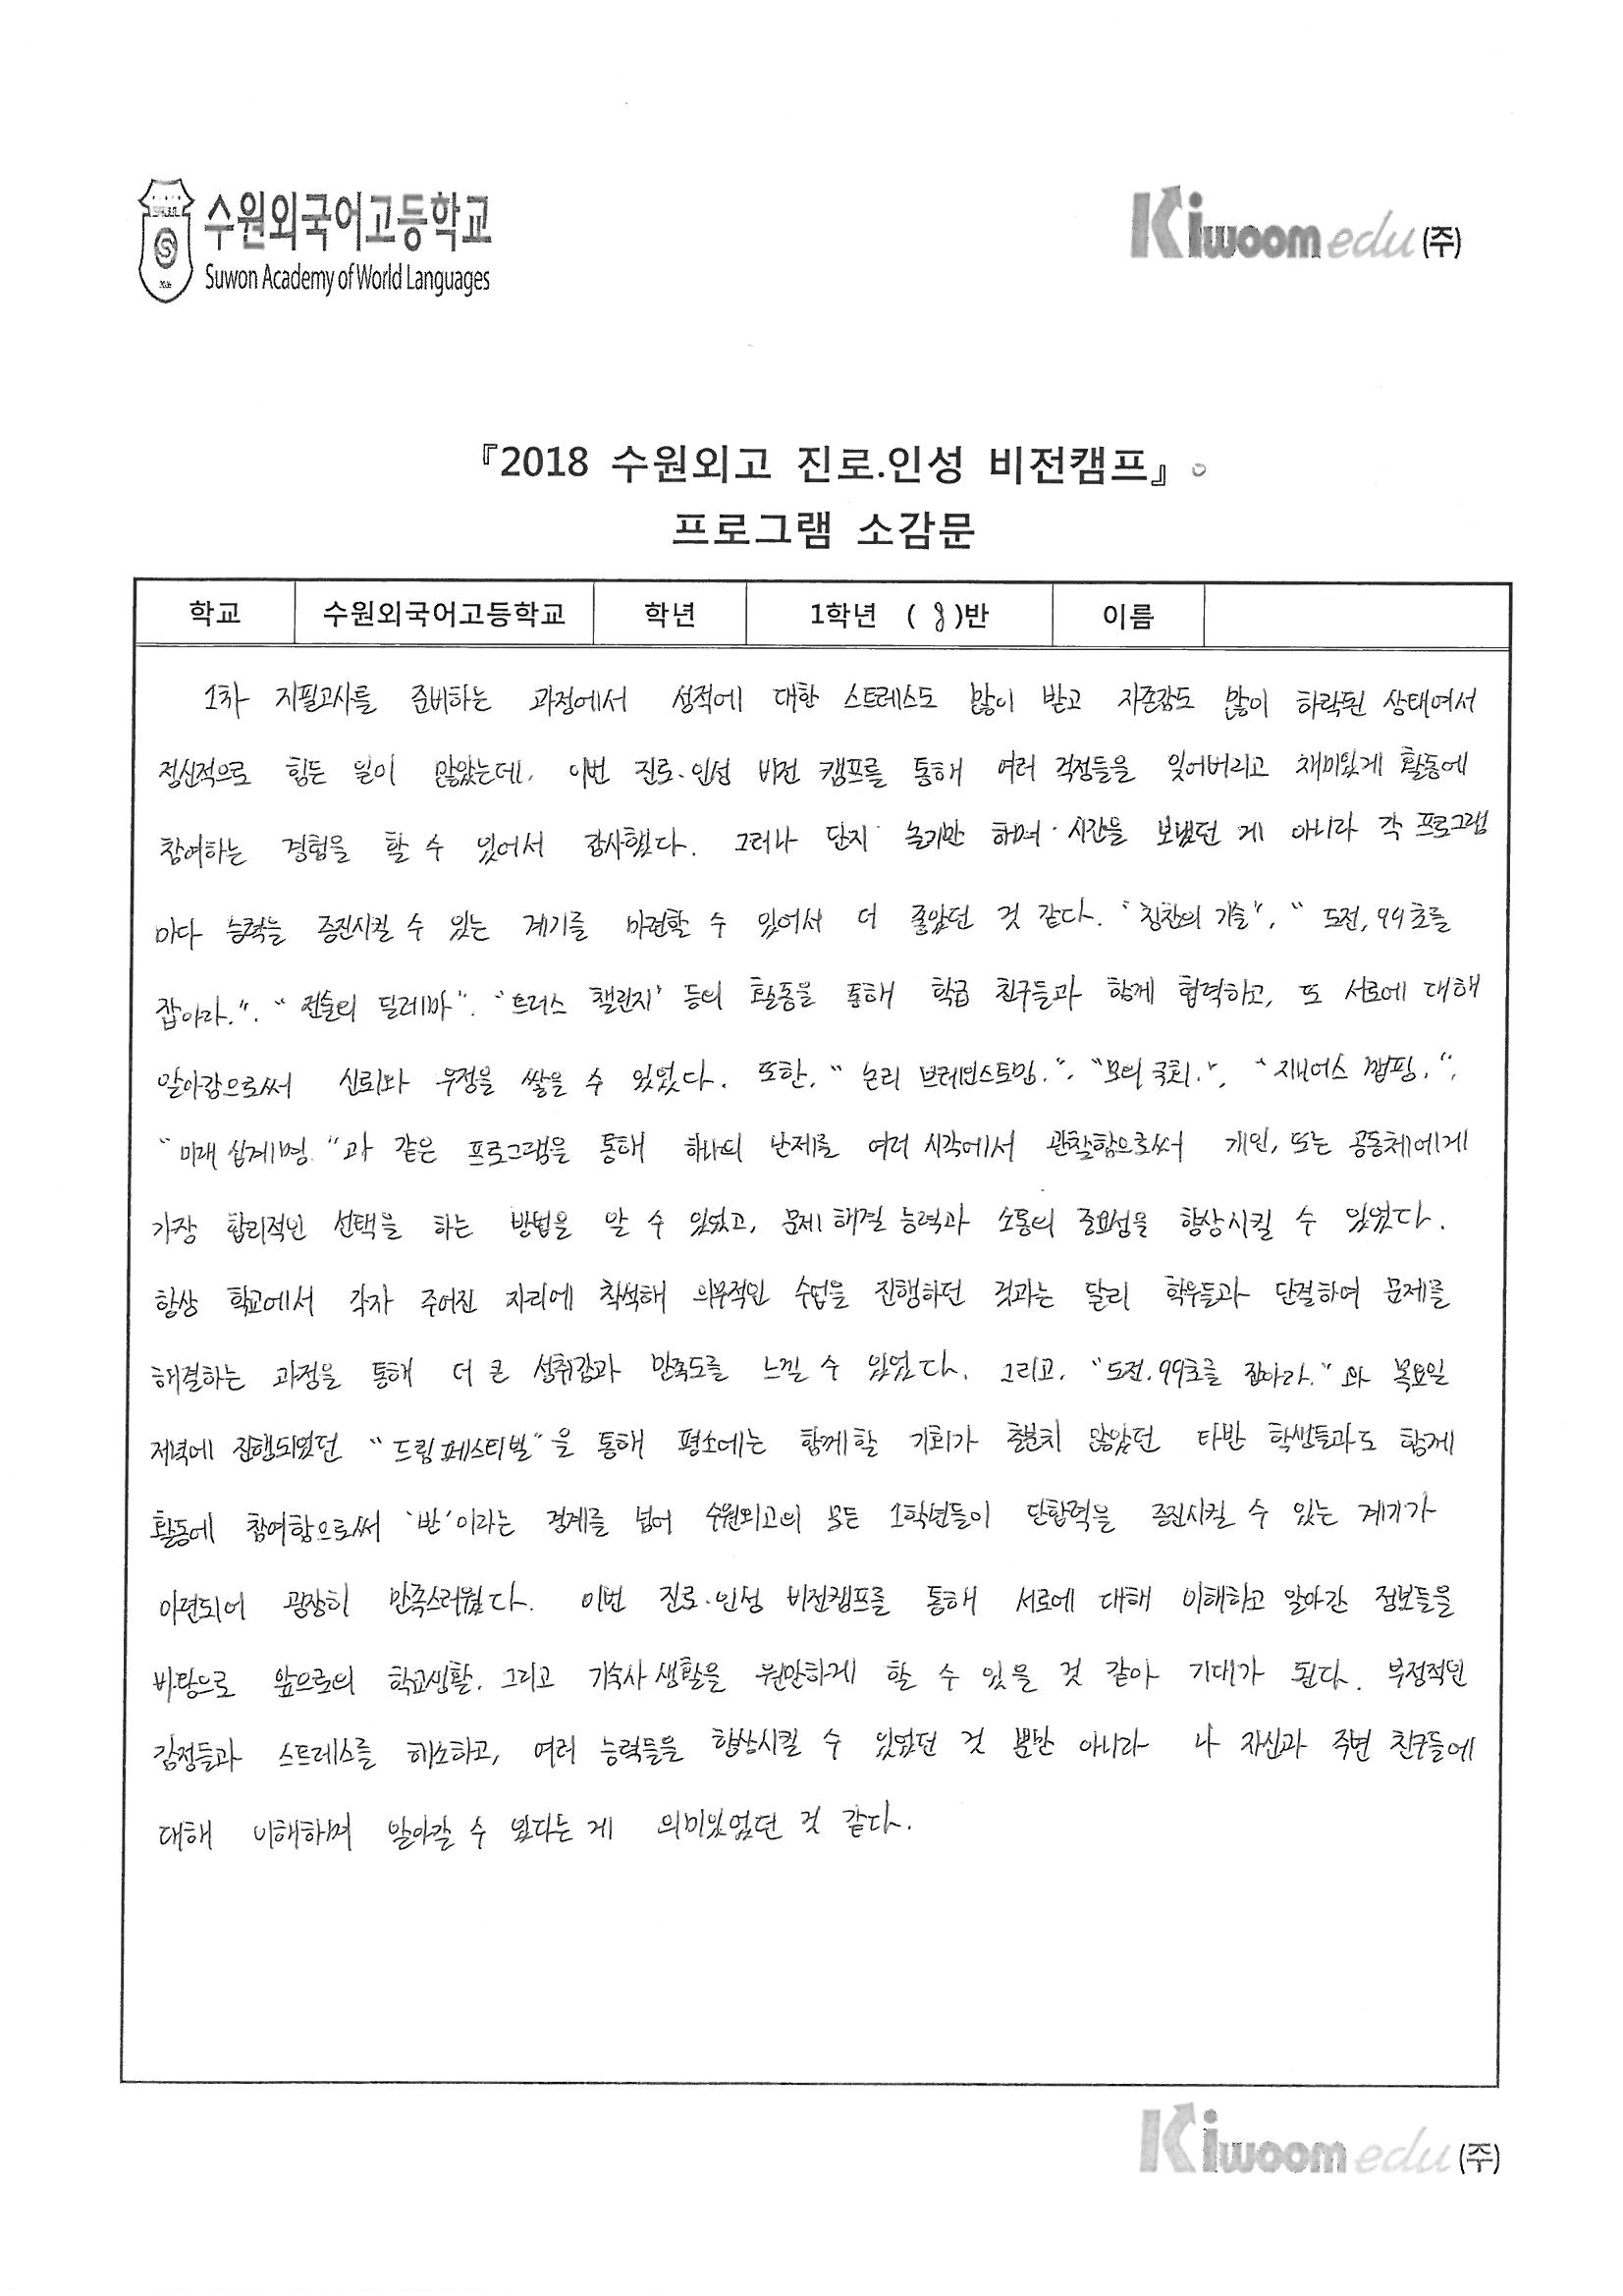 수원외국어고등학교
Suwon Academy of World Languages
Kiwoom edu (주)
『2018 수원외고 진로.인성 비전캠프』
프로그램 소감문
학교 수원외국어고등학교 학년 1학년 ( 8 )반 이름
1차 지필고사를 준비하는 과정에서 성적에 대한 스트레스도 많이 받고 자존감도 많이 하락된 상태여서
정신적으로 힘든 일이 많았는데, 이번 진로.인성 비전 캠프를 통해 여러 걱정들을 잊어버리고 재미있게 활동에
참여하는 경험을 할 수 있어서 감사했다. 그러나 단지 놀기만 하며 시간을 보냈던 게 아니라 각 프로그램
마다 능력을 증진시킬 수 있는 계기를 마련할 수 있어서 더 좋았던 것 같다. "칭찬의 기술", "도전, 99초를
잡아라.", "전술의 딜레마", "트러스 챌린지" 등의 활동을 통해 학급 친구들과 함께 협력하고, 또 서로에 대해
알아감으로써 신뢰와 우정을 쌓을 수 있었다. 또한, "논리 브레인스토밍.", "모의 국회.", "지니어스 맵핑.",
"미래 십계명."과 같은 프로그램을 통해 하나의 난제를 여러 시각에서 관찰함으로써 개인, 또는 공동체에게
가장 합리적인 선택을 하는 방법을 알 수 있었고, 문제 해결 능력과 소통의 중요성을 향상시킬 수 있었다.
항상 학교에서 각자 주어진 자리에 착석해 의무적인 수업을 진행하던 것과는 달리 학우들과 단결하여 문제를
해결하는 과정을 통해 더 큰 성취감과 만족도를 느낄 수 있었다. 그리고, "도전, 99초를 잡아라."와 목요일
저녁에 진행되었던 "드림 페스티벌"을 통해 평소에는 함께할 기회가 충분치 않았던 타반 학생들과도 함께
활동에 참여함으로써 '반'이라는 경계를 넘어 수원외고의 모든 1학년들이 단합력을 증진시킬 수 있는 계기가
마련되어 굉장히 만족스러웠다. 이번 진로.인성 비전캠프를 통해 서로에 대해 이해하고 알아간 정보들을
바탕으로 앞으로의 학교생활, 그리고 기숙사 생활을 원만하게 할 수 있을 것 같아 기대가 된다. 부정적인
감정들과 스트레스를 해소하고, 여러 능력들을 향상시킬 수 있었던 것 뿐만 아니라 나 자신과 주변 친구들에
대해 이해하며 알아갈 수 있다는 게 의미있었던 것 같다.
Kiwoom edu (주)